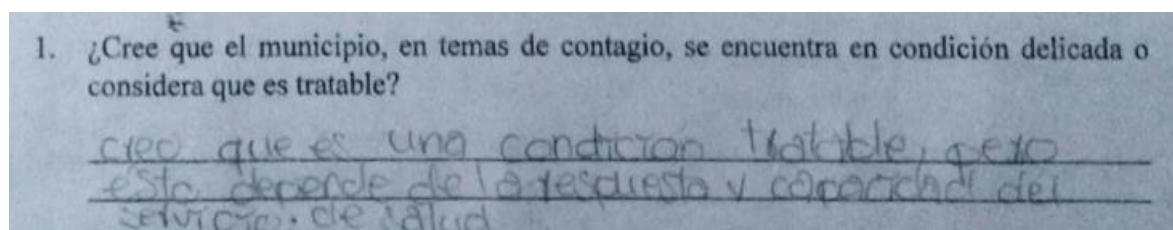 1. ¿Cree que el municipio, en temas de contagio, se encuentra en condición delicada o
considera que es tratable?
creo que es una condicion tratable, pero
esto depende de la respuesta y capacidad del
servicio. de salud